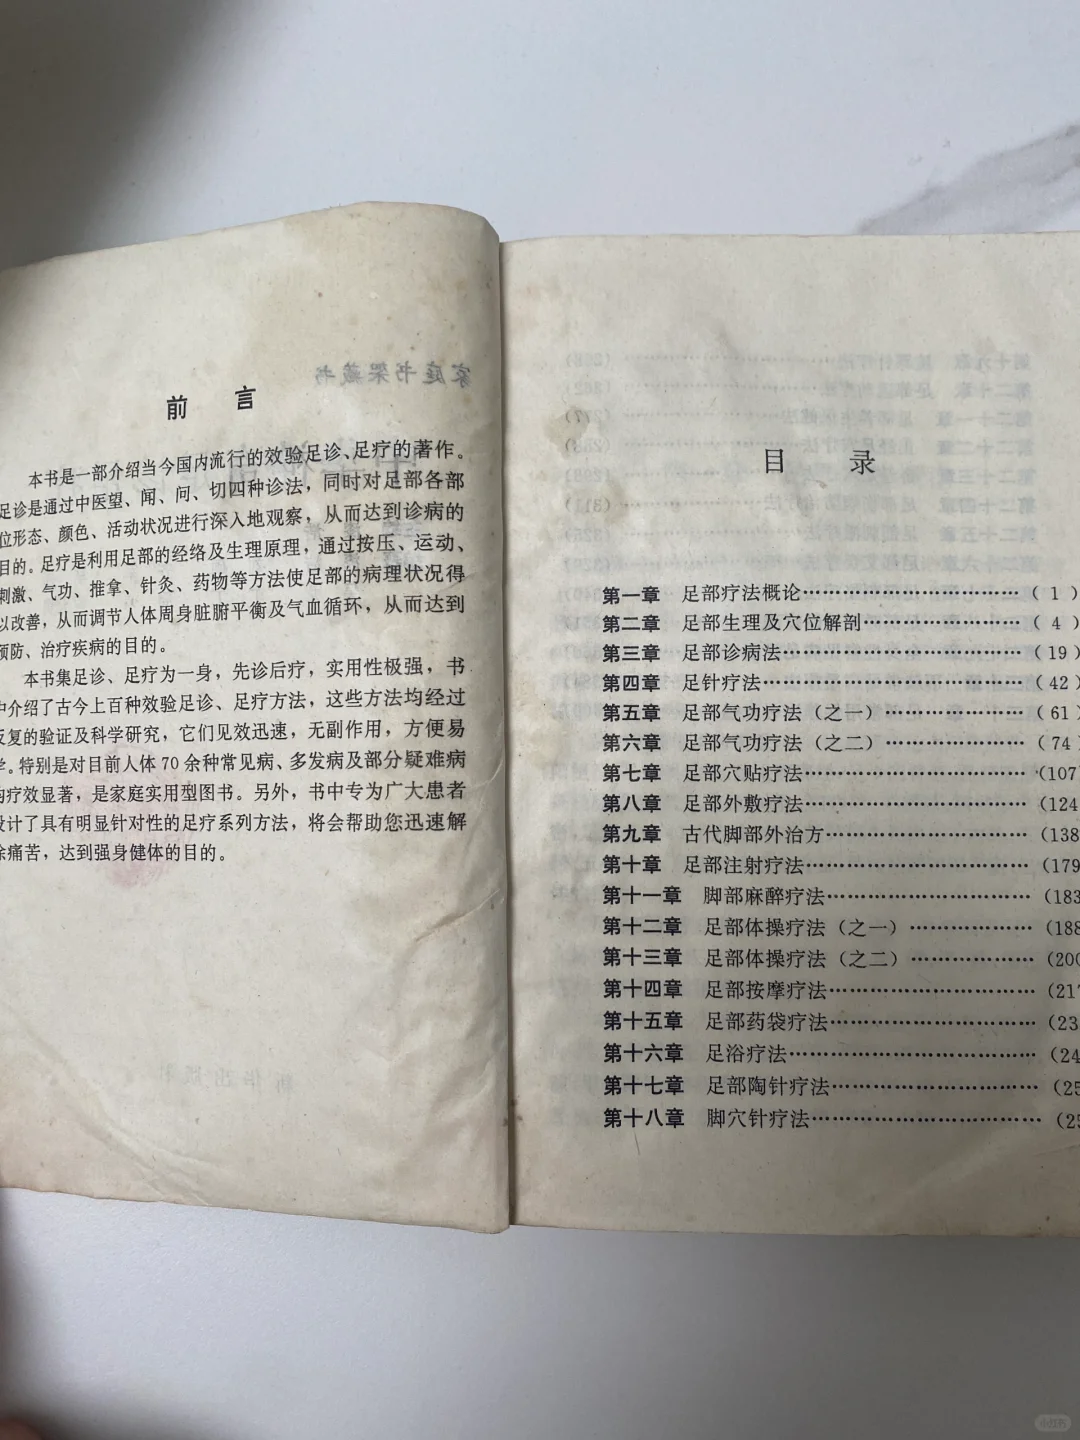 前 言
本书是一部介绍当今国内流行的效验足诊、足疗的著作。
足诊是通过中医望、闻、问、切四种诊法，同时对足部各部
位形态、颜色、活动状况进行深入地观察，从而达到诊病的
目的。足疗是利用足部的经络及生理原理，通过按压、运动、
刺激、气功、推拿、针灸、药物等方法使足部的病理状况得
以改善，从而调节人体周身脏腑平衡及气血循环，从而达到
预防、治疗疾病的目的。
本书集足诊、足疗为一身，先诊后疗，实用性极强，书
中介绍了古今上百种效验足诊、足疗方法，这些方法均经过
反复的验证及科学研究，它们见效迅速，无副作用，方便易
学。特别是对目前人体 70 余种常见病、多发病及部分疑难病
的疗效显著，是家庭实用型图书。另外，书中专为广大患者
设计了具有明显针对性的足疗系列方法，将会帮助您迅速解
除痛苦，达到强身健体的目的。
目 录
第一章 足部疗法概论…………………………（ 1 ）
第二章 足部生理及穴位解剖…………………（ 4 ）
第三章 足部诊病法……………………………（19）
第四章 足针疗法………………………………（42）
第五章 足部气功疗法（之一）………………（61）
第六章 足部气功疗法（之二）………………（74）
第七章 足部穴贴疗法…………………………（107）
第八章 足部外敷疗法…………………………（124
第九章 古代脚部外治方………………………（138
第十章 足部注射疗法…………………………（179
第十一章 脚部麻醉疗法………………………（183
第十二章 足部体操疗法（之一）……………（188
第十三章 足部体操疗法（之二）……………（200
第十四章 足部按摩疗法………………………（217
第十五章 足部药袋疗法………………………（23
第十六章 足浴疗法……………………………（24
第十七章 足部陶针疗法………………………（25
第十八章 脚穴针疗法…………………………（25